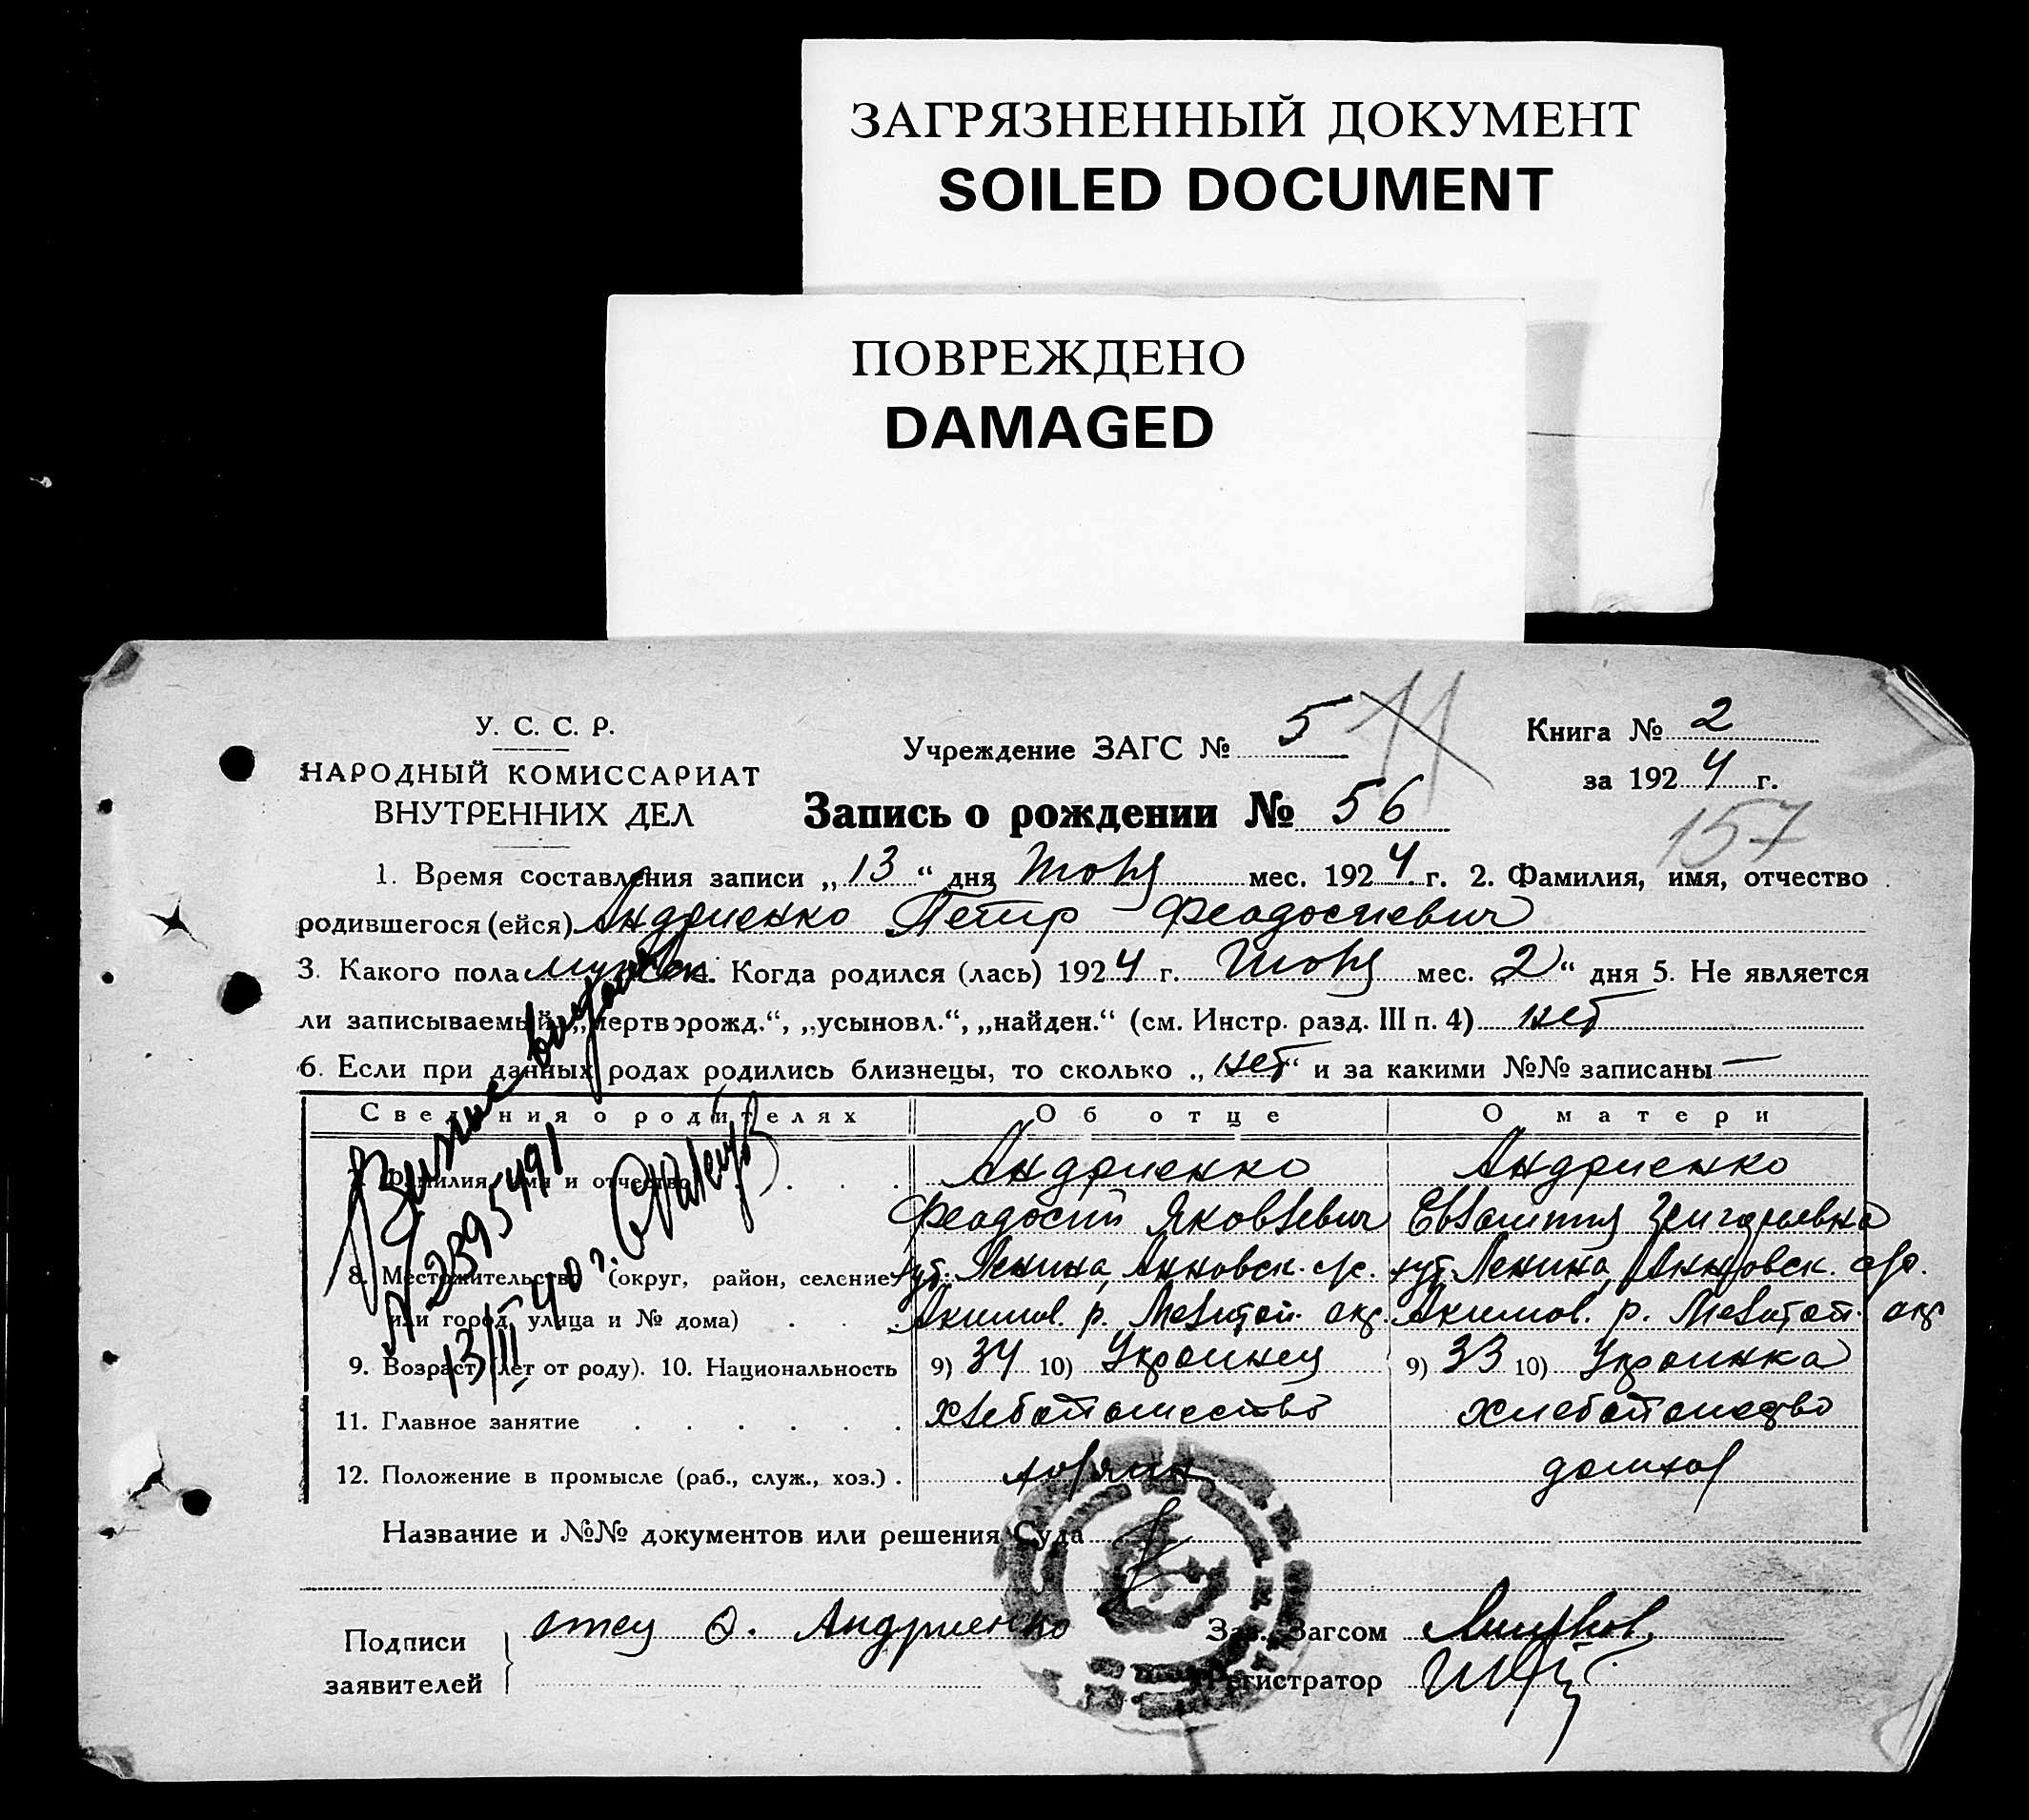 ЗАГРЯЗНЕННЫЙ ДОКУМЕНТ
SOILED DOCUMENT
ПОВРЕЖДЕНО
DAMAGED
У. С. С. Р.
НАРОДНЫЙ КОМИССАРИАТ
ВНУТРЕННИХ ДЕЛ
Учреждение ЗАГС № 5 11
Книга № 2
за 1924 г.
Запись о рождении № 56
157
1. Время составления записи „13“ дня мес. 1924 г. 2. Фамилия, имя, отчество
родившегося (ейся) Андриенко Петр Феодосиевич
3. Какого пола мужск. 4. Когда родился (лась) 1924 г. мес. „2“ дня 5. Не является
ли записываемый „мертворожд.“, „усыновл.“, „найден.“ (см. Инстр. разд. III п. 4) нет
6. Если при данных родах родились близнецы, то сколько „нет“ и за какими №№ записаны —
Сведения о родителях Об отце О матери
7. Фамилия, имя и отчество Андриенко Андриенко
Феодосий Яковлевич Евгения Григорьевна
8. Местожительство (округ, район, селение хут. Ленина, Анновск. с/с. хут. Ленина, Анновск. с/с.
или город, улица и № дома) Акимов. р. Мелитоп. окр. Акимов. р. Мелитоп. окр
9. Возраст (лет от роду). 10. Национальность 9) 34 10) Украинец 9) 33 10) Украинка
11. Главное занятие хлебопашество хлебопашество
12. Положение в промысле (раб., служ., хоз.) хозяин домхоз
№ 2395491
13/III 40 г.
Название и №№ документов или решения Суда
Подписи
заявителей
отец Ф. Андриенко
Зав. Загсом
Регистратор